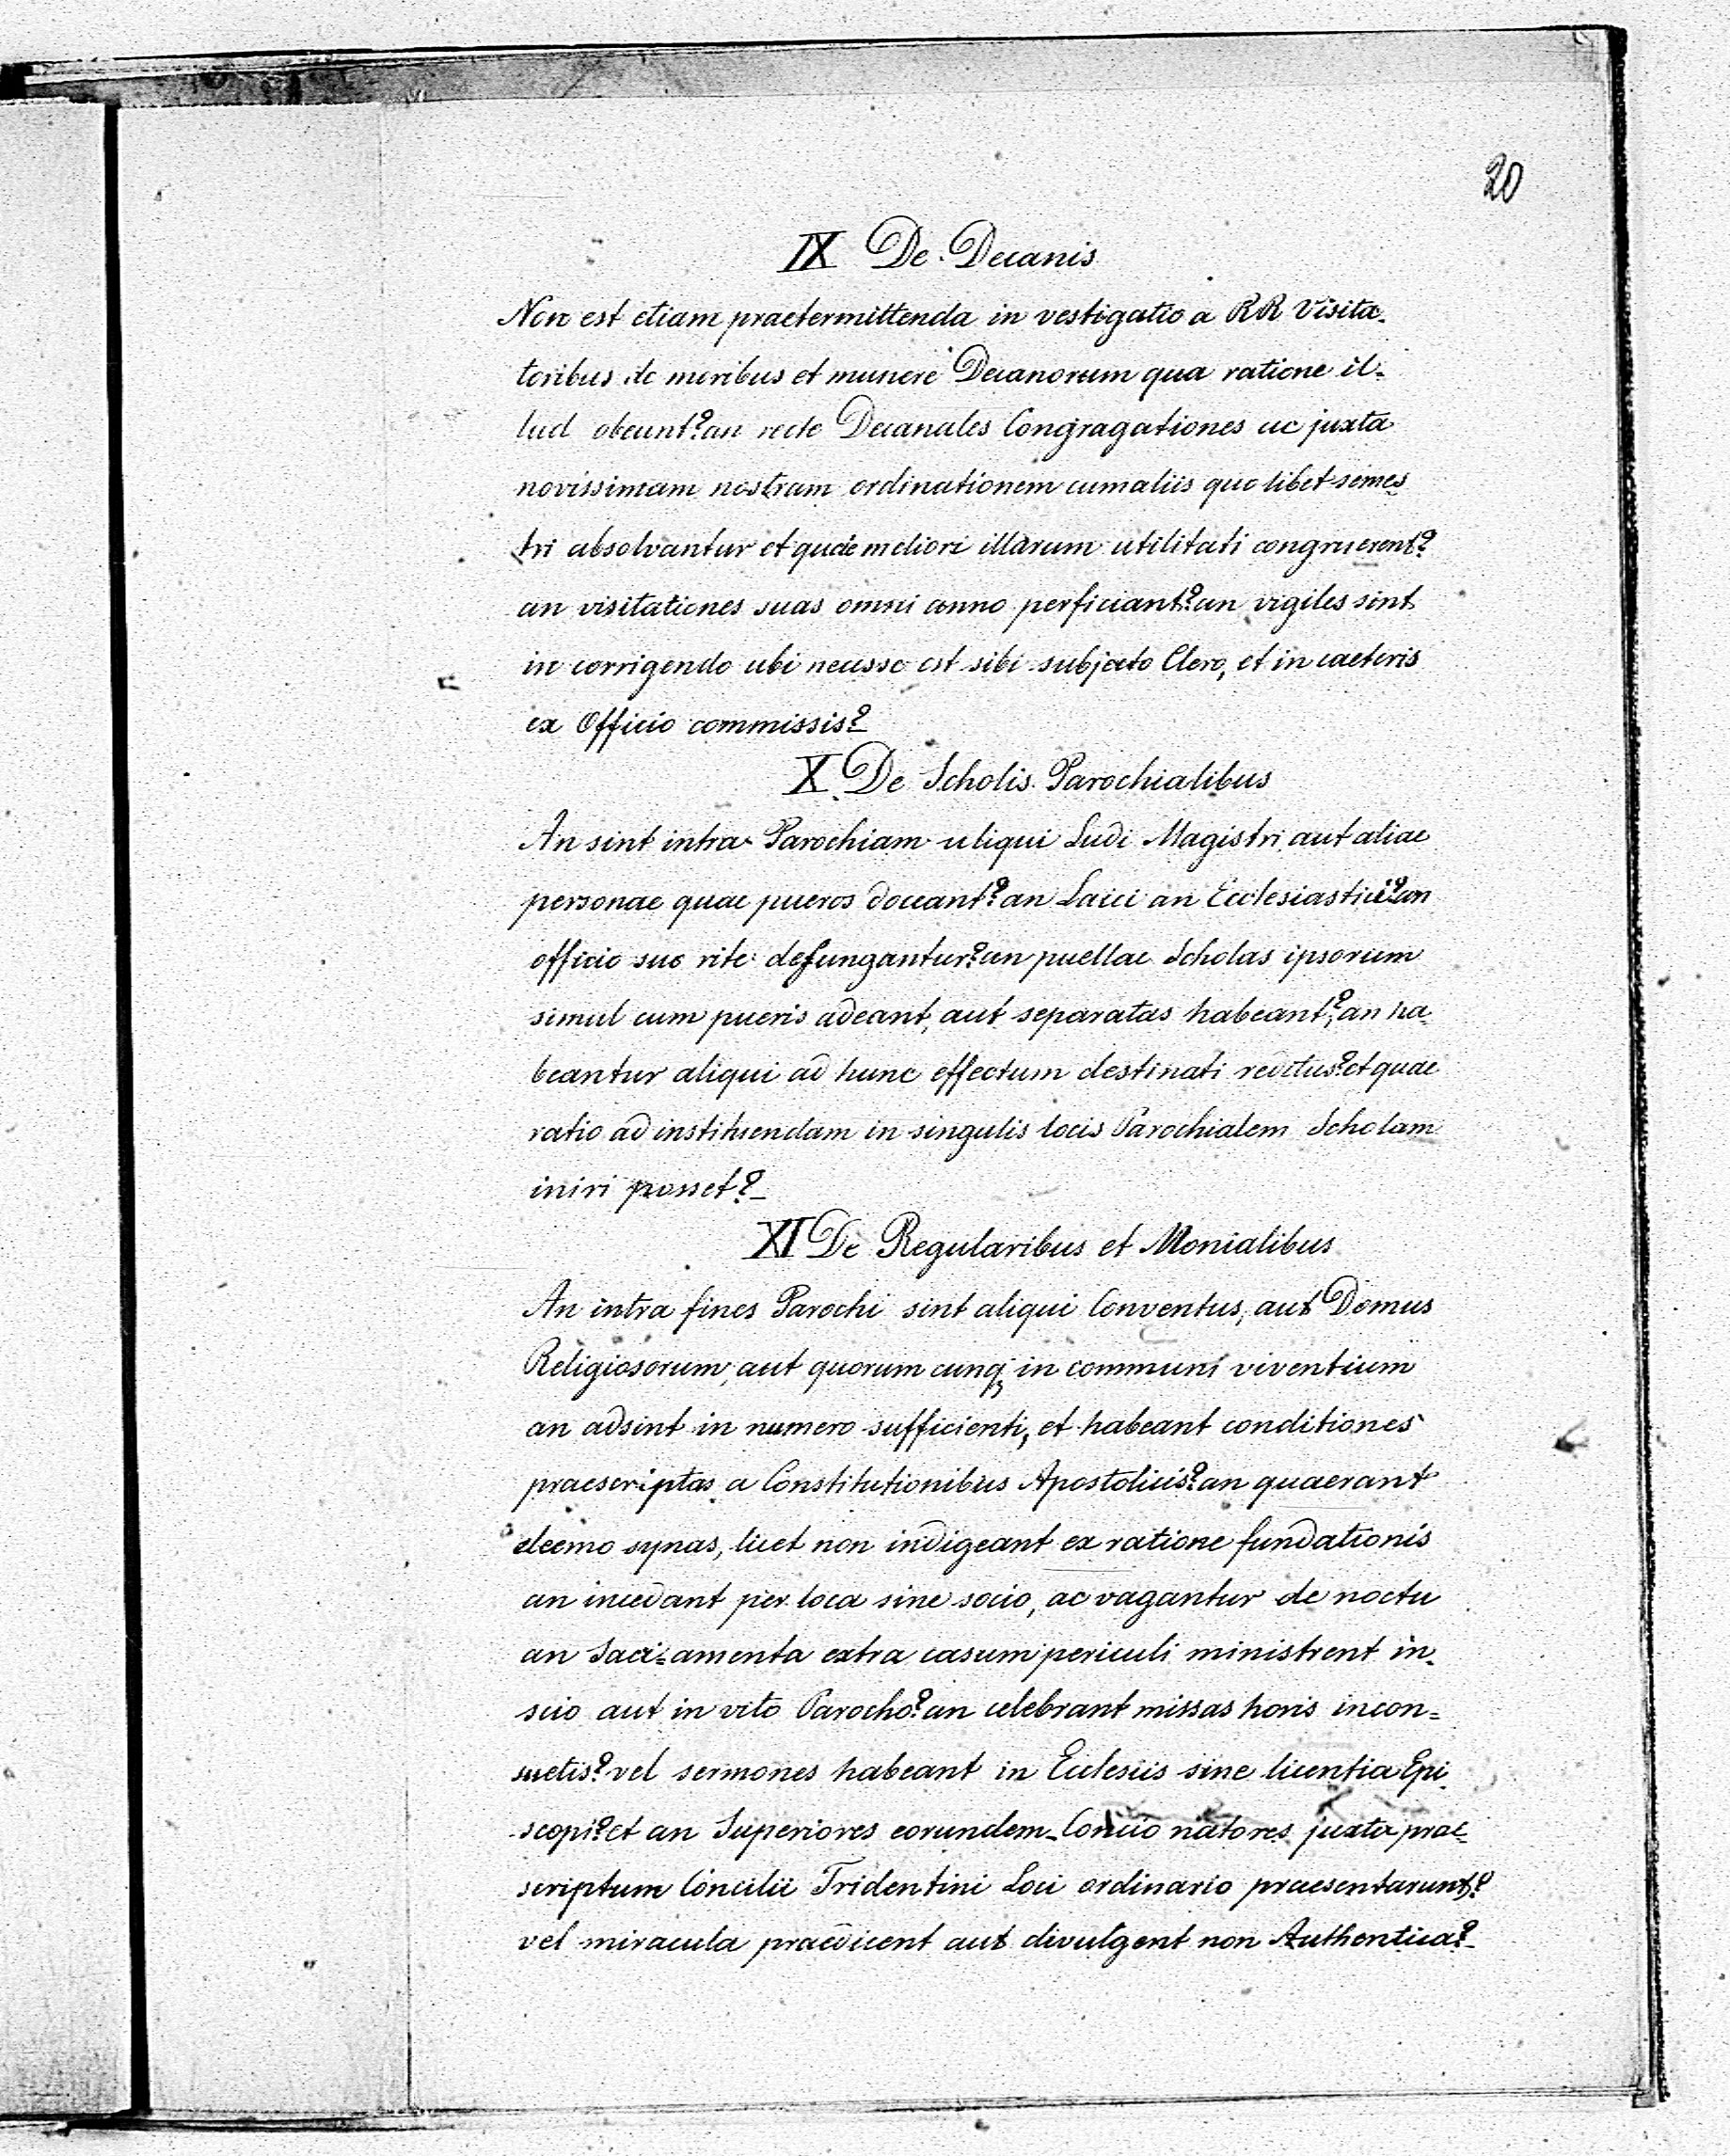 20
IX De Decanis
Non est etiam praetermittenda in vestigatio a RR Visita-
toribus de moribus et munere Decanorum qua ratione il-
lud obeunt? an recte Decanales Congragationes ac juxta
novissimam nostram ordinationem cumaliis quo libet semes-
tri absolvantur et quae meliori illarum utilitati congruerent?
an visitationes suas omni anno perficiant? an vigiles sint
in corrigendo ubi necesse est sibi subjecto Clero, et in caeteris
ex Officio commissis?
X De Scholis Parochialibus
An sint intra Parochiam aliqui Ludi Magistri aut aliae
personae quae pueros doceant? an Laici an Ecclesiastici? an
officio suo rite defungantur? an puellae Scholas ipsorum
simul cum pueris adeant, aut separatas habeant? an ha-
beantur aliqui ad hunc effectum destinati reditus? et quae
ratio ad instituendam in singulis locis Parochialem Scholam
iniri posset?
XI De Regularibus et Monialibus
An intra fines Parochi sint aliqui Conventus, aut Domus
Religiosorum, aut quorum cunq; in communi viventium
an adsint in numero sufficienti, et habeant conditiones
praescriptas a Constitutionibus Apostolicis? an quaerant
eleemo synas, licet non indigeant ex ratione fundationis
an incedant per loca sine socio, ac vagantur de noctu
an Sacr-amenta extra casum periculi ministrent in-
scio aut in vito Parocho? an celebrant missas horis incon=
suetis? vel sermones habeant in Ecclesiis sine licentia Epi-
scopi? et an Superiores eorundem Concio natores juxta prae-
scriptum Concilii Tridentini Loci ordinario praesentarunt?
vel miracula praedicent aut divulgent non Authentica?